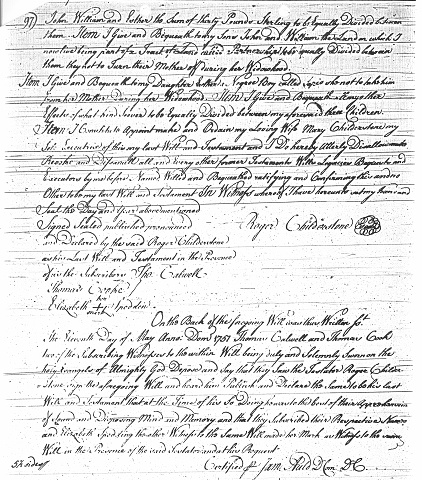 97) John William and Esther the Sum of Thirty Pounds Sterling to be Equally Divided between
them Item I Give and Bequeath to my Sons John and William the Land on which I
now live being part of a Tract of Land called to be equally Divided between
them they not to Turn their Mother off during her Widowhood
Item I Give and Bequeath to my Daughter Esther a Negroe Boy Called she not to take him
from her Mother During her Widowhood Item I Give and Bequeath all my other
Effects of what kind Soever to be Equally Divided between my aforesaid three Children.
Item I Constitute Appoint make and Ordain my Loving Wife Mary Childerstone my
Sole Executrix of this my last Will and Testament and I Do hereby utterly Disallow revoke
and Disannull all and every other former Testaments Wills Legacies Bequests and
Executors by me before Named Willed and Bequeathed ratifying and Confirming this and no
Other to be my last Will and Testament In Witness whereof I have hereunto set my hand and
Seal the Day and Year above mentioned
Signed Sealed published pronounced Roger Childerstone
and Declared by the said Roger Childerstone
as his Last Will and Testament in the Presence
of us the Subscribers Tho Calwell
Thomas Cooke
her
Elizabeth + Spedden
mark
On the Back of the foregoing Will was thus Written
The Eleventh Day of May Anno Dom 1757 Thomas Calwell and Thomas Cook
two of the Subscribing Witnesses to the within Will being duly and Solemnly Sworn on the
holy Evangels of Almighty God Depose and say that they Saw the Testator Roger Childer
stone sign the aforegoing Will and heard him Publish and Declare the Same to be his last
Will and Testament that at the Time of his So Doing he was to the best of their Apprehensions
of Sound and Disposing Mind and Memory and that they Subscribed their Respective Names
and Elizabeth Spedding the other Witness to the Same Will made her Mark as Witness to the same
Will in the Presence of the said Testator and at his Request
Certified